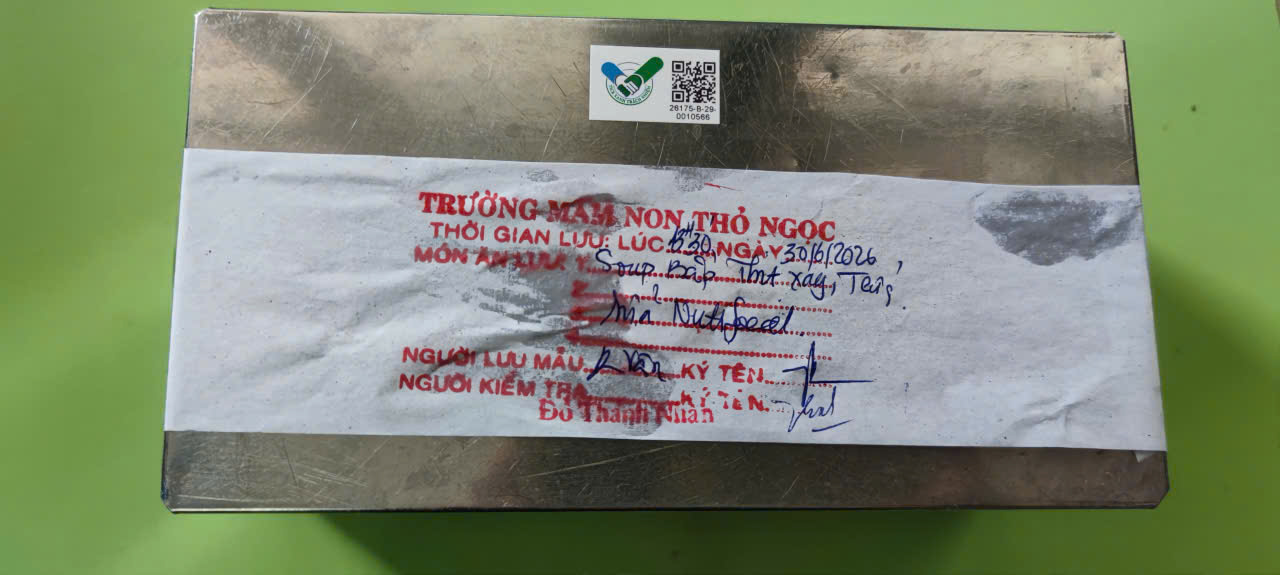 26175-B-29-
0010566
TRƯỜNG MẦM NON THỎ NGỌC
THỜI GIAN LƯU: LÚC 13H30, NGÀY 30/6/2026,
MÓN ĂN LƯU: 1. Soup Bắp Thịt xay,
NGƯỜI LƯU MẪU Vân KÝ TÊN
NGƯỜI KIỂM TRA KÝ TÊN.
Đỗ Thanh Nhàn